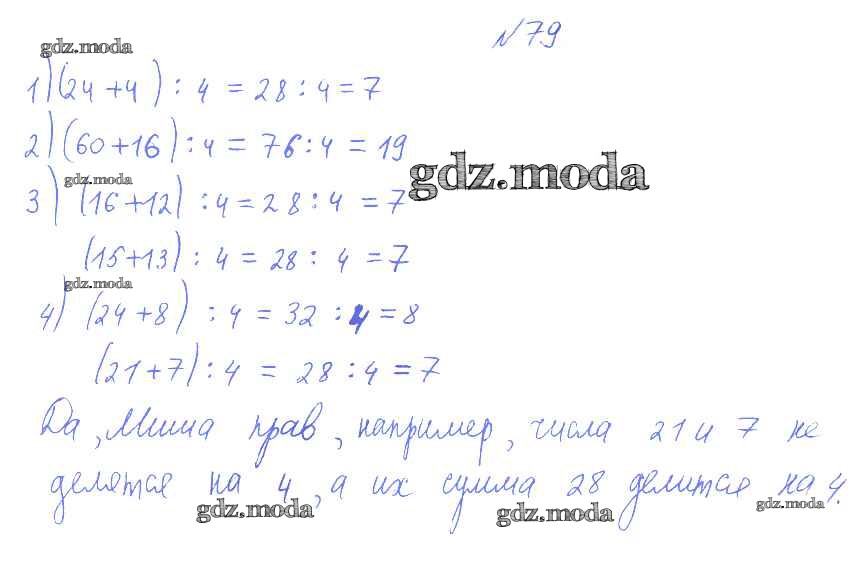 №79
gdz.moda
1) (24+4) : 4 = 28 : 4 = 7
2) (60+16) : 4 = 76 : 4 = 19
gdz.moda
gdz.moda
3) (16+12) : 4 = 28 : 4 = 7
(15+13) : 4 = 28 : 4 = 7
gdz.moda
4) (24+8) : 4 = 32 : 4 = 8
(21+7) : 4 = 28 : 4 = 7
Да, Миша прав, например, числа 21 и 7 не
делятся на 4, а их сумма 28 делится на 4.
gdz.moda
gdz.moda
gdz.moda